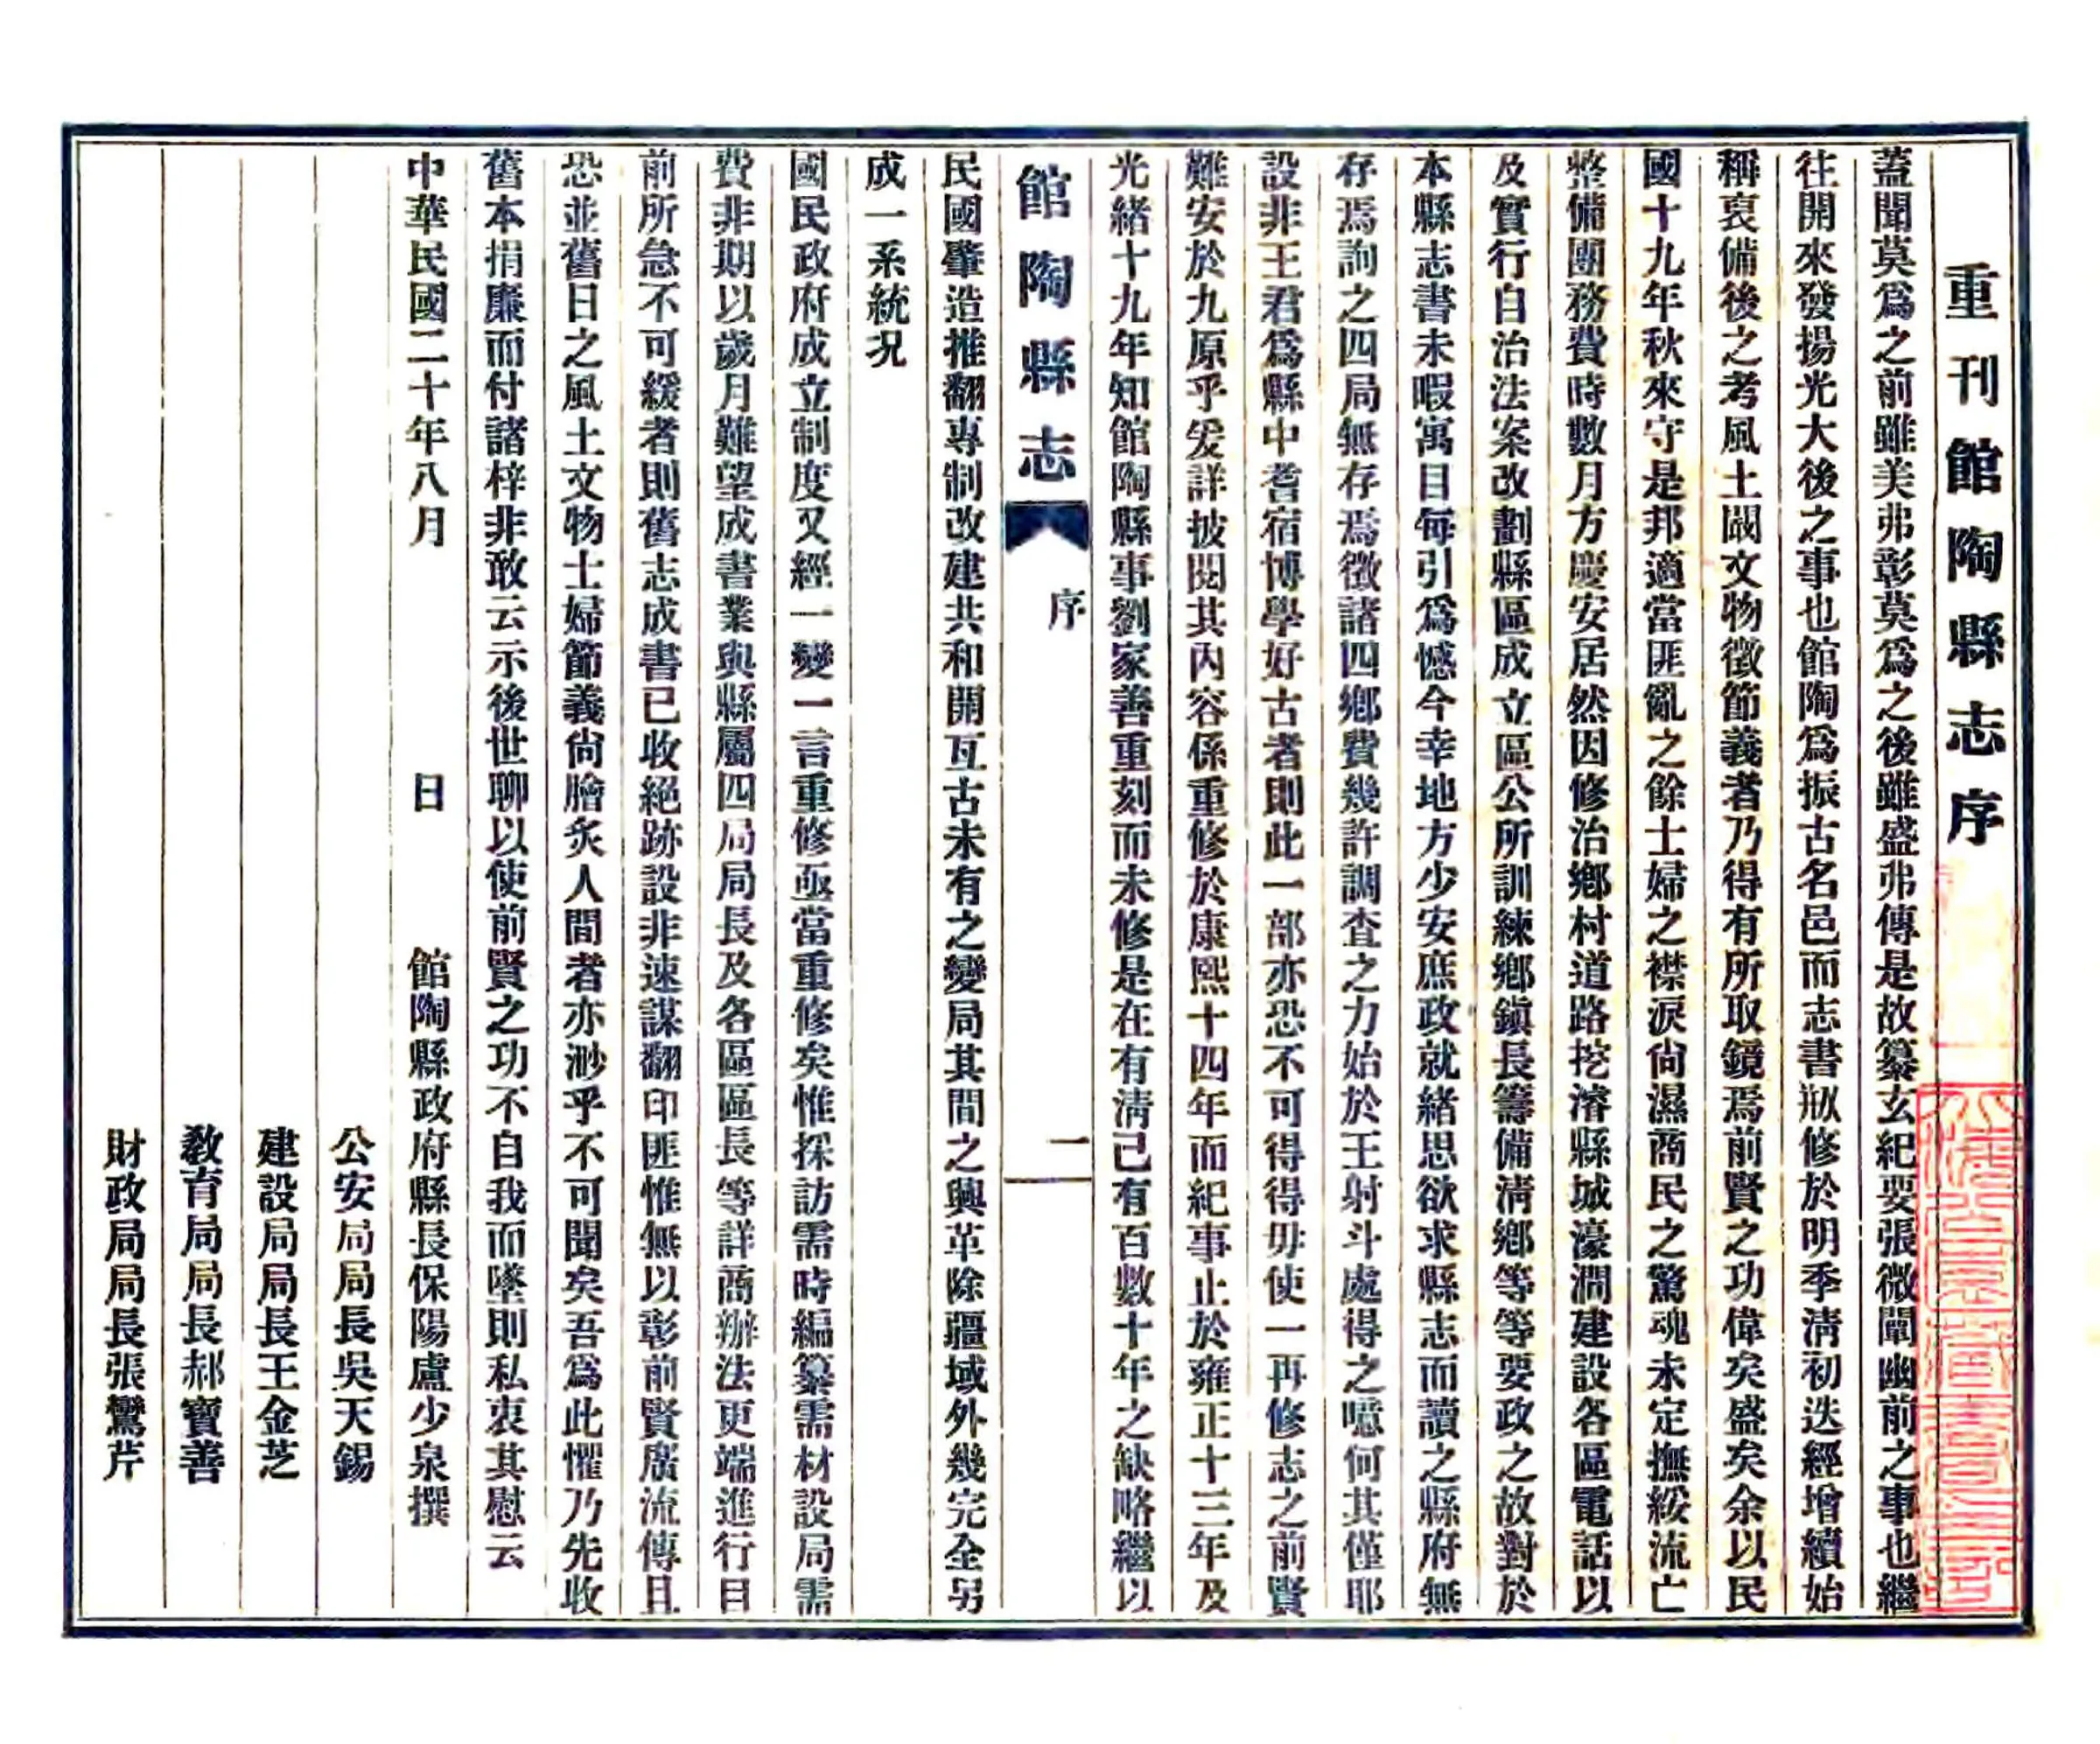 重刊館陶縣志序
蓋聞莫爲之前雖美弗彰莫爲之後雖盛弗傳是故纂玄紀要張微闡幽前之事也繼
往開來發揚光大後之事也館陶爲振古名邑而志書刱修於明季清初迭經增續始
稱裒備後之考風土闞文物徵節義者乃得有所取鏡焉前賢之功偉矣盛矣余以民
國十九年秋來守是邦適當匪亂之餘士婦之襟淚尙濕商民之驚魂未定撫綏流亡
整備團務費時數月方慶安居然因修治鄉村道路挖濬縣城濠澗建設各區電話以
及實行自治法案改劃縣區成立區公所訓練鄉鎭長籌備清鄉等等要政之故對於
本縣志書未暇寓目每引爲憾今幸地方少安庶政就緒思欲求縣志而讀之縣府無
存焉詢之四局無存焉徵諸四鄉費幾許調查之力始於王射斗處得之噫何其僅耶
設非王君爲縣中耆宿博學好古者則此一部亦恐不可得得毋使一再修志之前賢
難安於九原乎爰詳披閱其內容係重修於康熙十四年而紀事止於雍正十三年及
光緒十九年知館陶縣事劉家善重刻而未修是在有清已有百數十年之缺略繼以
館陶縣志 序 二
民國肇造推翻專制改建共和開亙古未有之變局其間之興革除疆域外幾完全另
成一系統況
國民政府成立制度又經一變一言重修亟當重修矣惟採訪需時編纂需材設局需
費非期以歲月難望成書業與縣屬四局局長及各區區長等詳商辦法更端進行目
前所急不可緩者則舊志成書已收絕跡設非速謀翻印匪惟無以彰前賢廣流傳且
恐並舊日之風土文物士婦節義尙膾炙人間者亦渺乎不可聞矣吾爲此懼乃先收
舊本捐廉而付諸梓非敢云示後世聊以使前賢之功不自我而墜則私衷其慰云
中華民國二十年八月 日 館陶縣政府縣長保陽盧少泉撰
公安局局長吳天錫
建設局局長王金芝
敎育局局長郝寶善
財政局局長張鸞芹